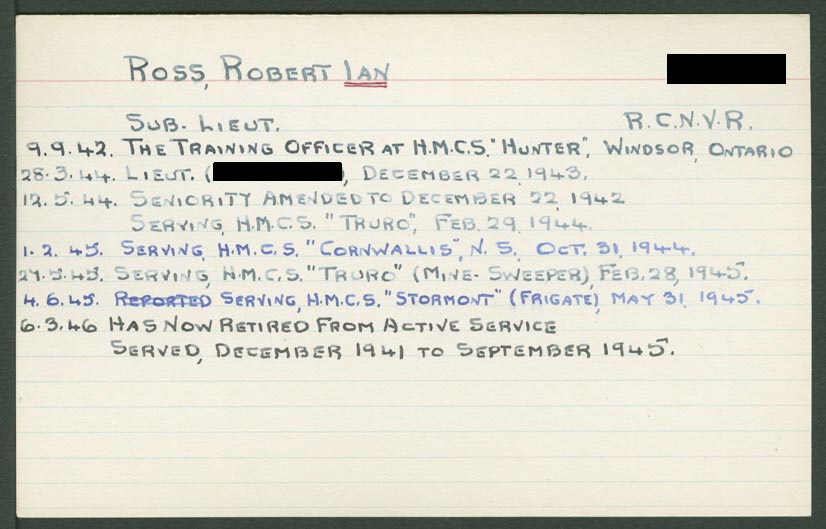 ROSS, ROBERT IAN
SUB. LIEUT. R.C.N.V.R.
9.9.42. THE TRAINING OFFICER AT H.M.C.S. "HUNTER", WINDSOR, ONTARIO
28.3.44. LIEUT. ( ), DECEMBER 22, 1943.
12.5.44. SENIORITY AMENDED TO DECEMBER 22, 1942
SERVING, H.M.C.S. "TRURO", FEB. 29, 1944.
1.2.45. SERVING, H.M.C.S. "CORNWALLIS", N.S., OCT. 31, 1944.
SERVING, H.M.C.S. "TRURO" (MINE-SWEEPER), FEB. 28, 1945.
4.6.45. REPORTED SERVING, H.M.C.S. "STORMONT" (FRIGATE), MAY 31, 1945.
6.3.46 HAS NOW RETIRED FROM ACTIVE SERVICE
SERVED, DECEMBER 1941 TO SEPTEMBER 1945.